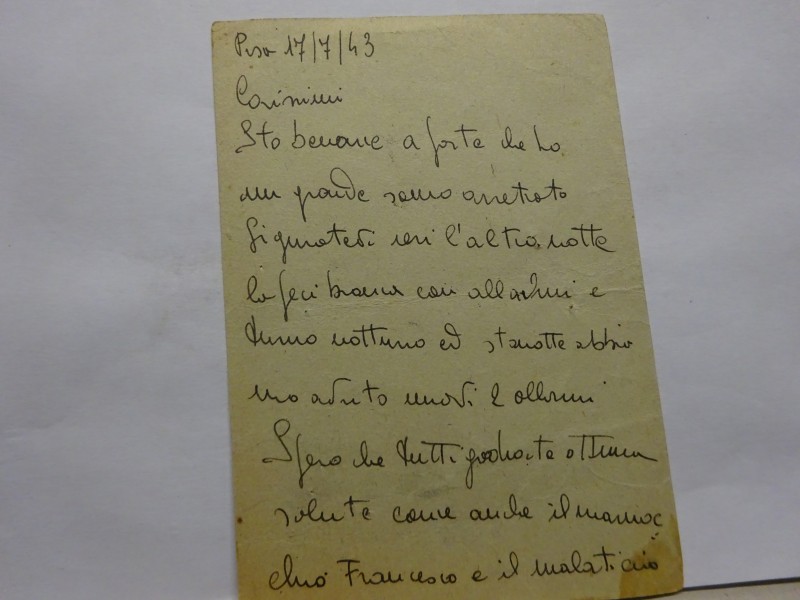 Pisa 17/7/43
Carissimi
Sto benone a parte che ho
un grande sonno arretrato
Figuratevi ieri l'altro notte
la feci bianca con allarmi e
turno notturno ed stanotte abbia
mo avuto 2 allarmi
Spero che tutti godiate ottima
salute come anche il marmoc
chio Francesco e il malaticcio